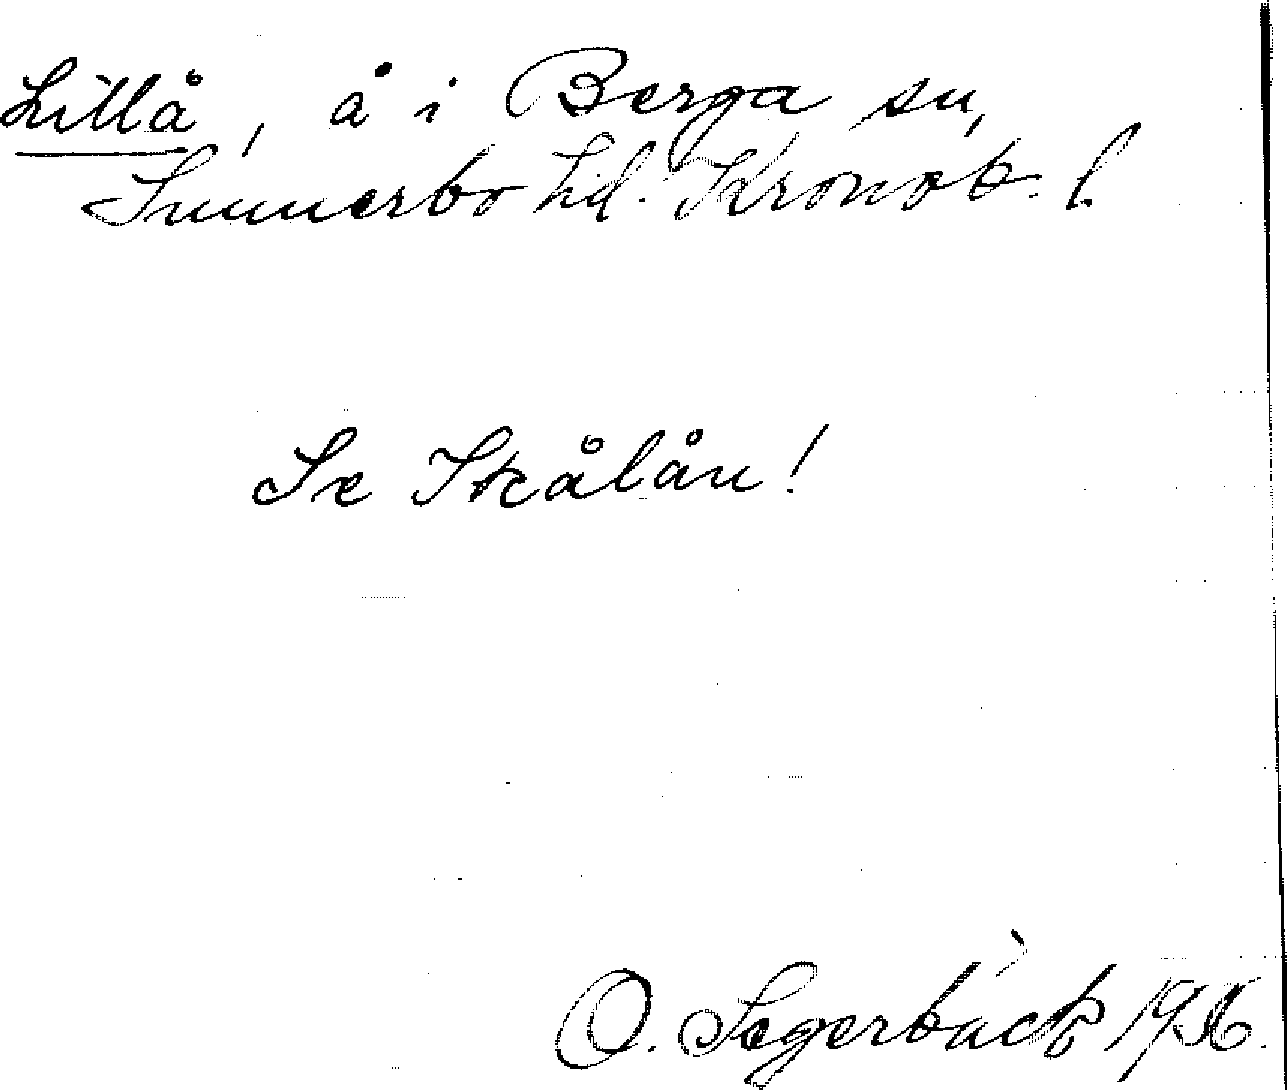 Lillå, å i Berga sn,
Sunnerbo hd. Kronob. l.
Se Skålån!
O. Segerbäck